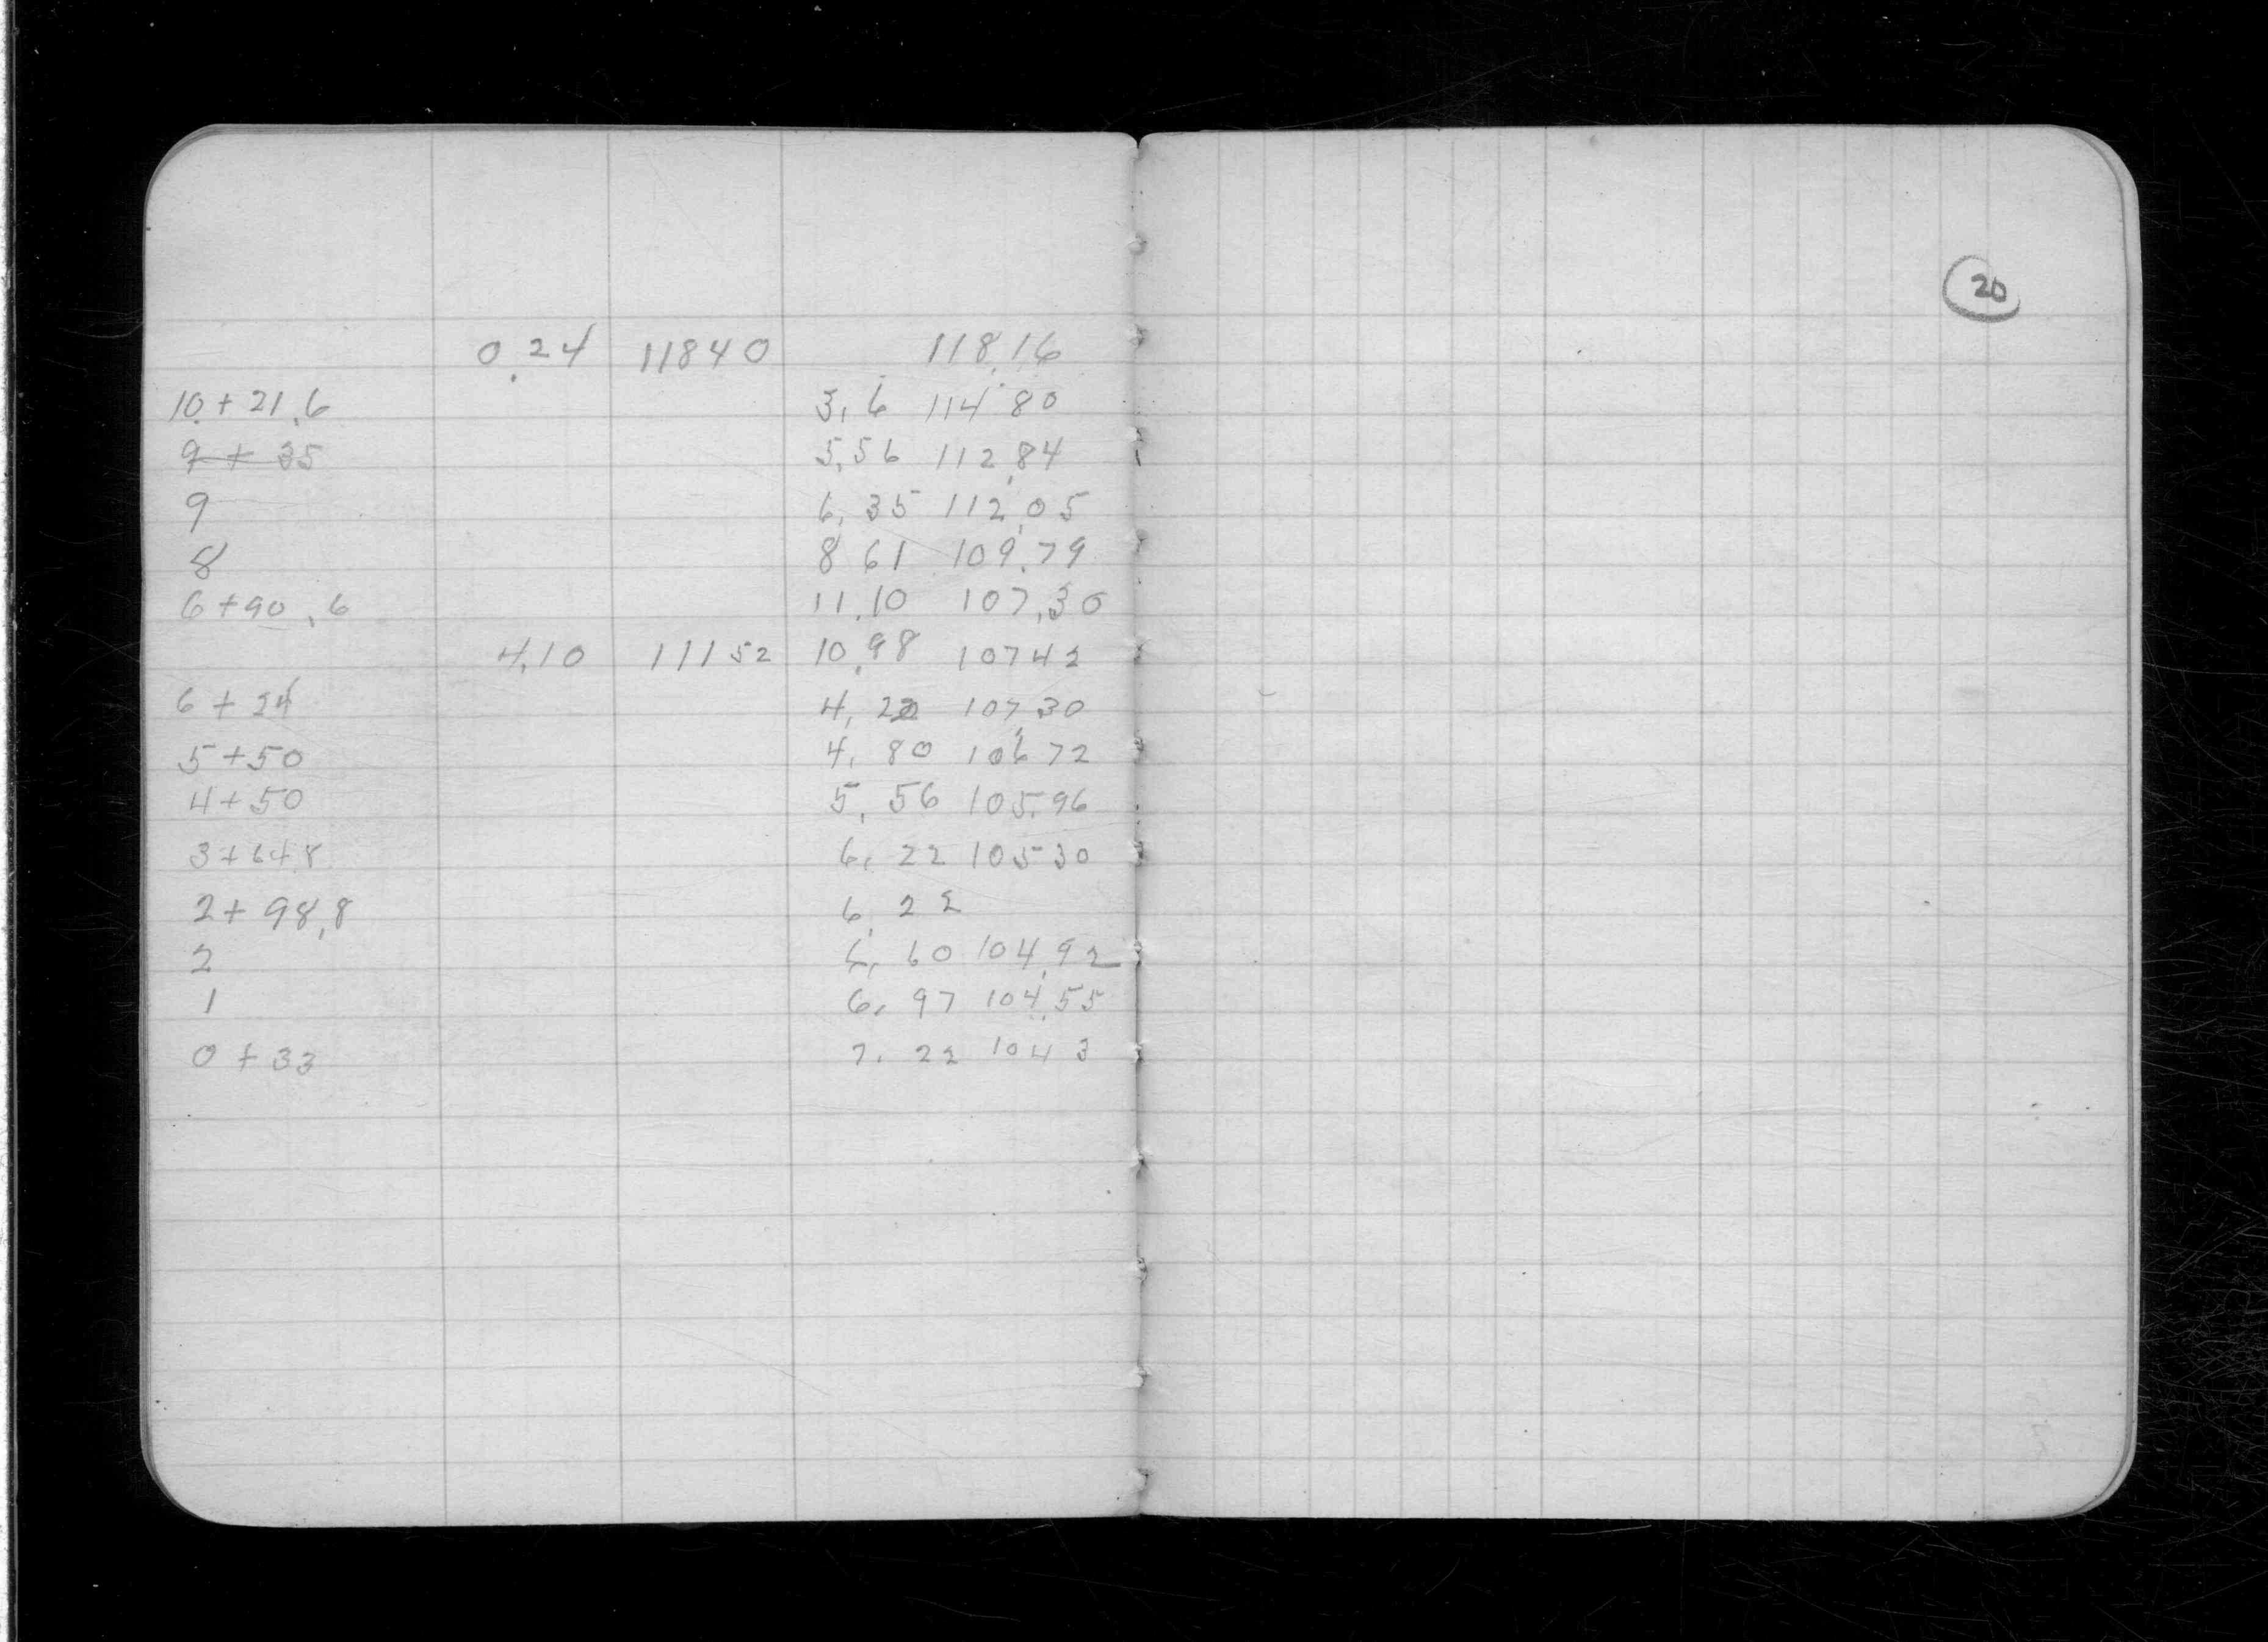 0.24 11840 118.16
10+21.6 3.6 114.80
9+35 5.56 112.84
9 6.35 112.05
8 8 61 109.79
6+90.6 11.10 107.30
4.10 11152 10.98 10742
6+24 4.22 107.30
5+50 4.80 106 72
4+50 5.56 105.96
3+64 8 6.22 105 30
2+98.8 6.22
2 6.60 104.92
1 6.97 104.55
0+33 7.22 104 3
20